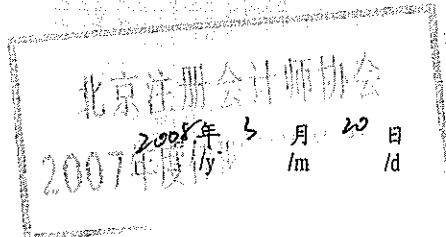 北京注册会计师协会
2008年 3 月 20 日
2007年度
/y /m /d